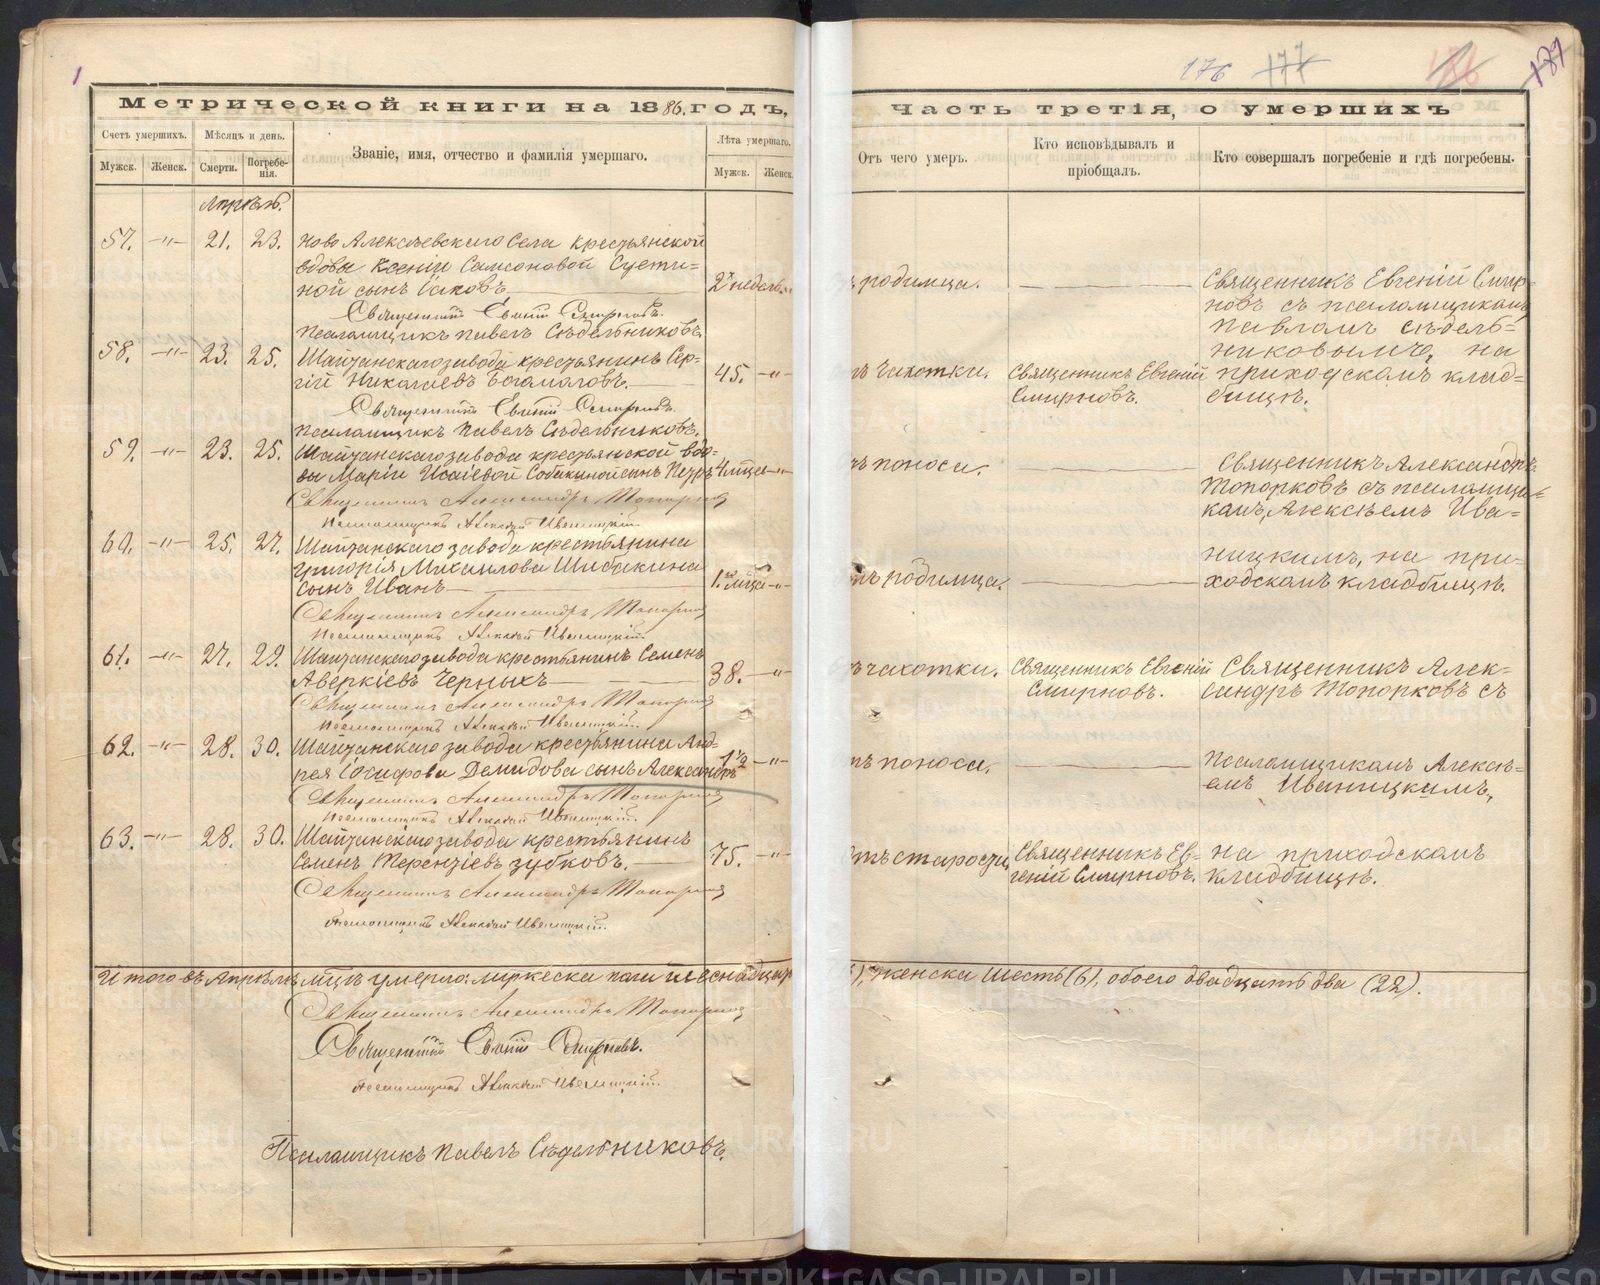 1
176 177 186 187
Метрической книги на 1886. годъ,
Часть третія, о умершихъ
Счетъ умершихъ.
Мѣсяцъ и день.
Званіе, имя, отчество и фамилія умершаго.
Лѣта умершаго.
Мужск.
Женск.
Смерти.
Погребе-
нія.
Мужск.
Женск.
Отъ чего умеръ.
Кто исповѣдывалъ и
пріобщалъ.
Кто совершалъ погребеніе и гдѣ погребены.
Апрѣль.
57. -"- 21. 23. Ново Алексѣевскаго Села крестьянской
вдовы Ксеніи Самсоновой Суети-
ной сынъ Іаковъ
2хъ недѣль
родимца.
Священникъ Евгеній Смир-
новъ съ псаломщикомъ
Павломъ Сѣдель-
никовымъ, на
приходскомъ клад-
бищѣ.
Священникъ Евгеній Смирновъ.
Псаломщикъ Павелъ Сѣдельниковъ.
58. -"- 23. 25. Шайтанскаго завода крестьянинъ Сер-
гій Николаевъ Богомоловъ.
45. -"-
чахотки.
Священникъ Евгеній
Смирновъ.
Священникъ Евгеній Смирновъ.
Псаломщикъ Павелъ Сѣдельниковъ.
59. -"- 23. 25. Шайтанскаго завода крестьянской вдо-
вы Маріи Исаіевой Собакиной сынъ Петръ
4 мѣсц. -"-
поноса.
Священникъ Александръ
Топорковъ съ псаломщи-
комъ, Алексѣемъ Ива-
ницкимъ, на при-
ходскомъ кладбищѣ.
Священникъ Александръ Топорковъ
Псаломщикъ Алексѣй Иваницкій.
60. -"- 25. 27. Шайтанскаго завода крестьянина
Григорія Михаилова Шибакина
сынъ Иванъ
1. мѣца -"-
родимца.
Священникъ Александръ Топорковъ
Псаломщикъ Алексѣй Иваницкій.
61. -"- 27. 29. Шайтанскаго завода крестьянинъ Семенъ
Аверкіевъ Черныхъ
38. -"-
чахотки.
Священникъ Евгеній
Смирновъ.
Священникъ Алек-
сандръ Топорковъ съ
Священникъ Александръ Топорковъ
Псаломщикъ Алексѣй Иваницкій.
62. -"- 28. 30. Шайтанскаго завода крестьянина Анд-
рея Іосифова Демидова сынъ Александръ
1 1/2 -"-
поноса.
Псаломщикомъ Алексѣ-
емъ Иваницкимъ,
Священникъ Александръ Топорковъ
Псаломщикъ Алексѣй Иваницкій.
63. -"- 28. 30. Шайтанскаго завода крестьянинъ
Семенъ Терентіевъ Зубковъ.
75. -"-
отъ старости
Священникъ Ев-
геній Смирновъ.
на приходскомъ
кладбищѣ.
Священникъ Александръ Топорковъ
Псаломщикъ Алексѣй Иваницкій.
Итого въ Апрѣлѣ мцѣ умерло: мужеска пола шеснадцать
женска шесть (6), обоего двадцать два (22).
Священникъ Александръ Топорковъ
Священникъ Евгеній Смирновъ.
Псаломщикъ Алексѣй Иваницкій.
Псаломщикъ Павелъ Сѣдельниковъ.
METRIKI.GASO-URAL.RU